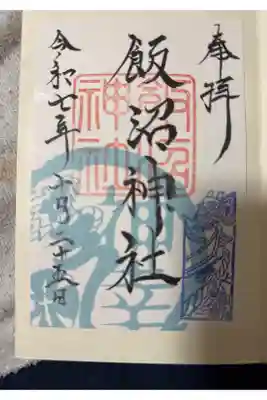 奉拝
飯沼神社
令和七年十月二十五日